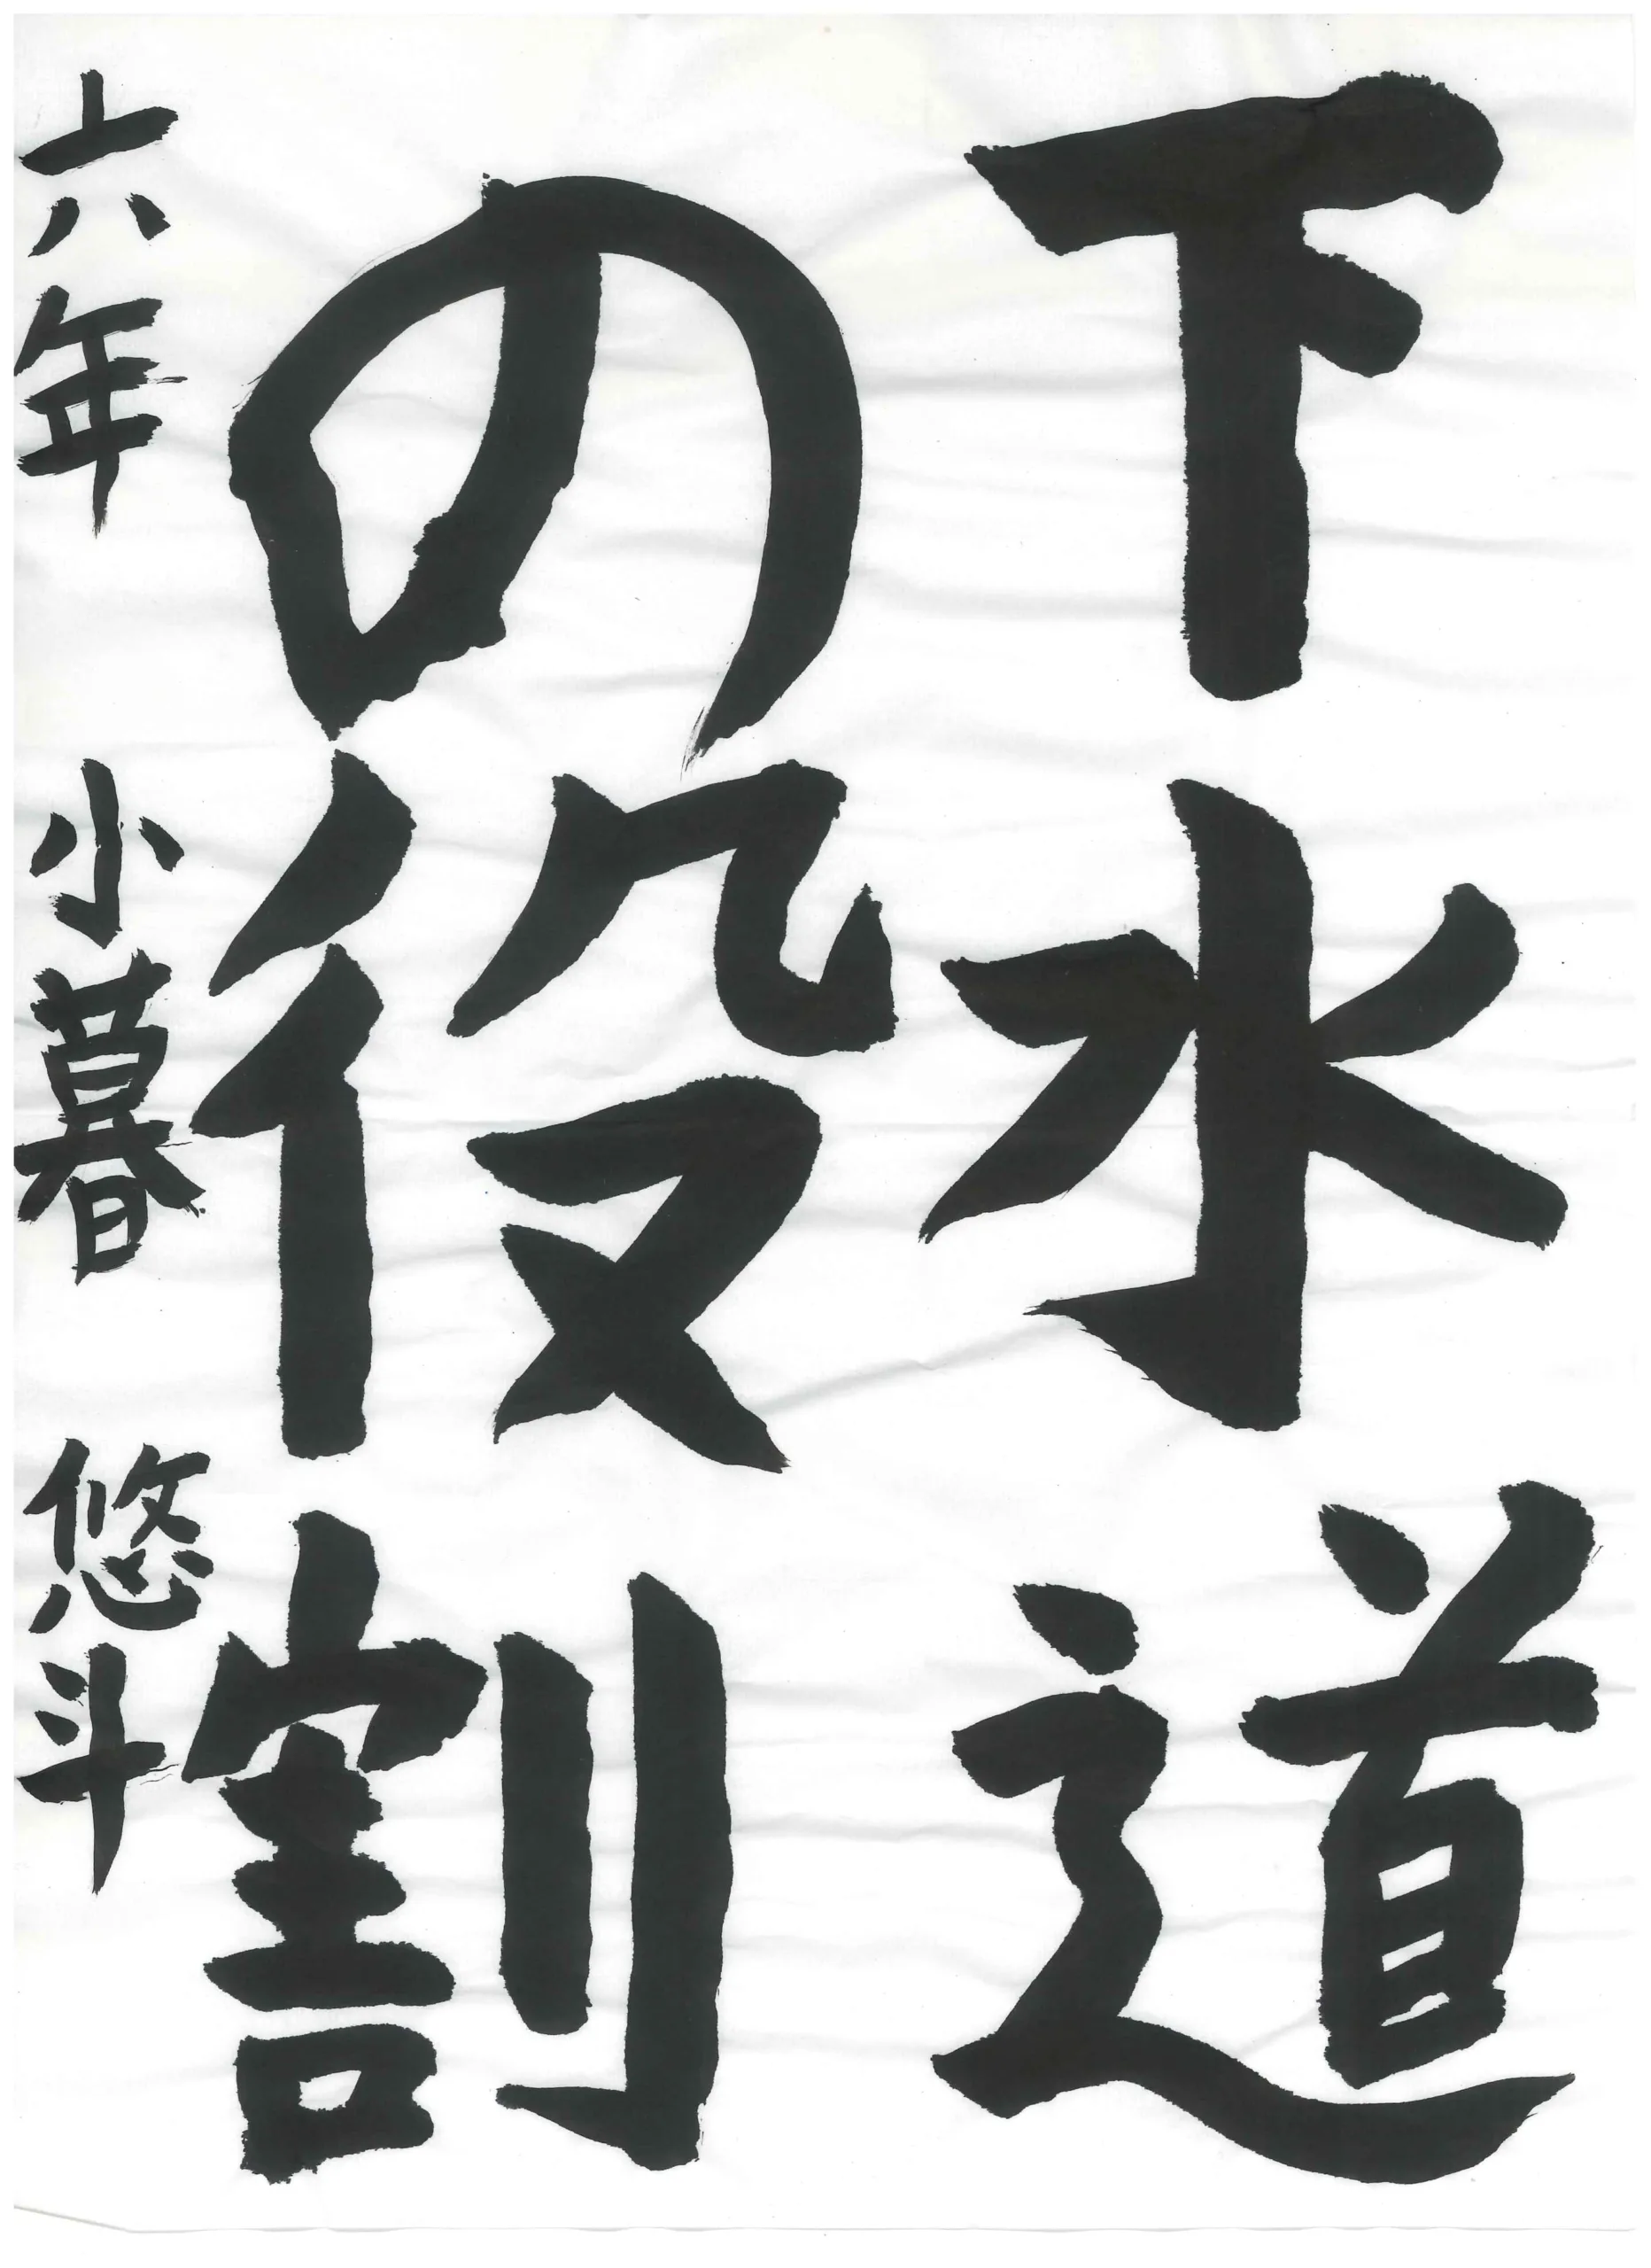 下水道
の役割
六年 小暮 悠斗